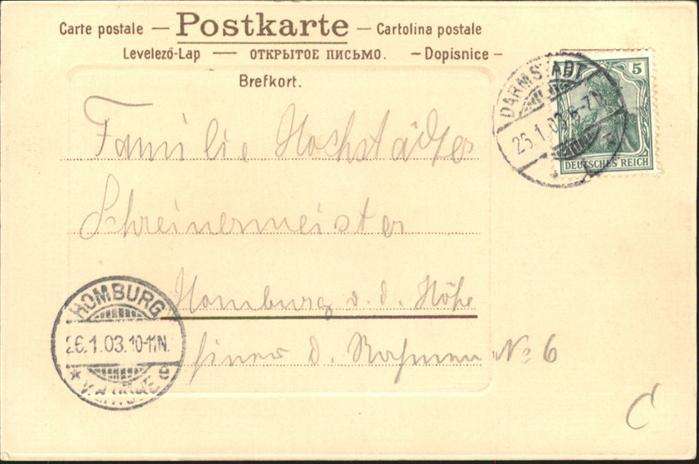 Carte postale — Postkarte — Cartolina postale
Levelező-Lap — ОТКРЫТОЕ ПИСЬМО. — Dopisnice —
Brefkort.
DARMSTADT
25.1.03. 6-7 N.
5
DEUTSCHES REICH
Familie Hochstädter
Schreinermeister
Homburg v. d. Höhe
d. No 6
HOMBURG
26.1.03. 10-11N.